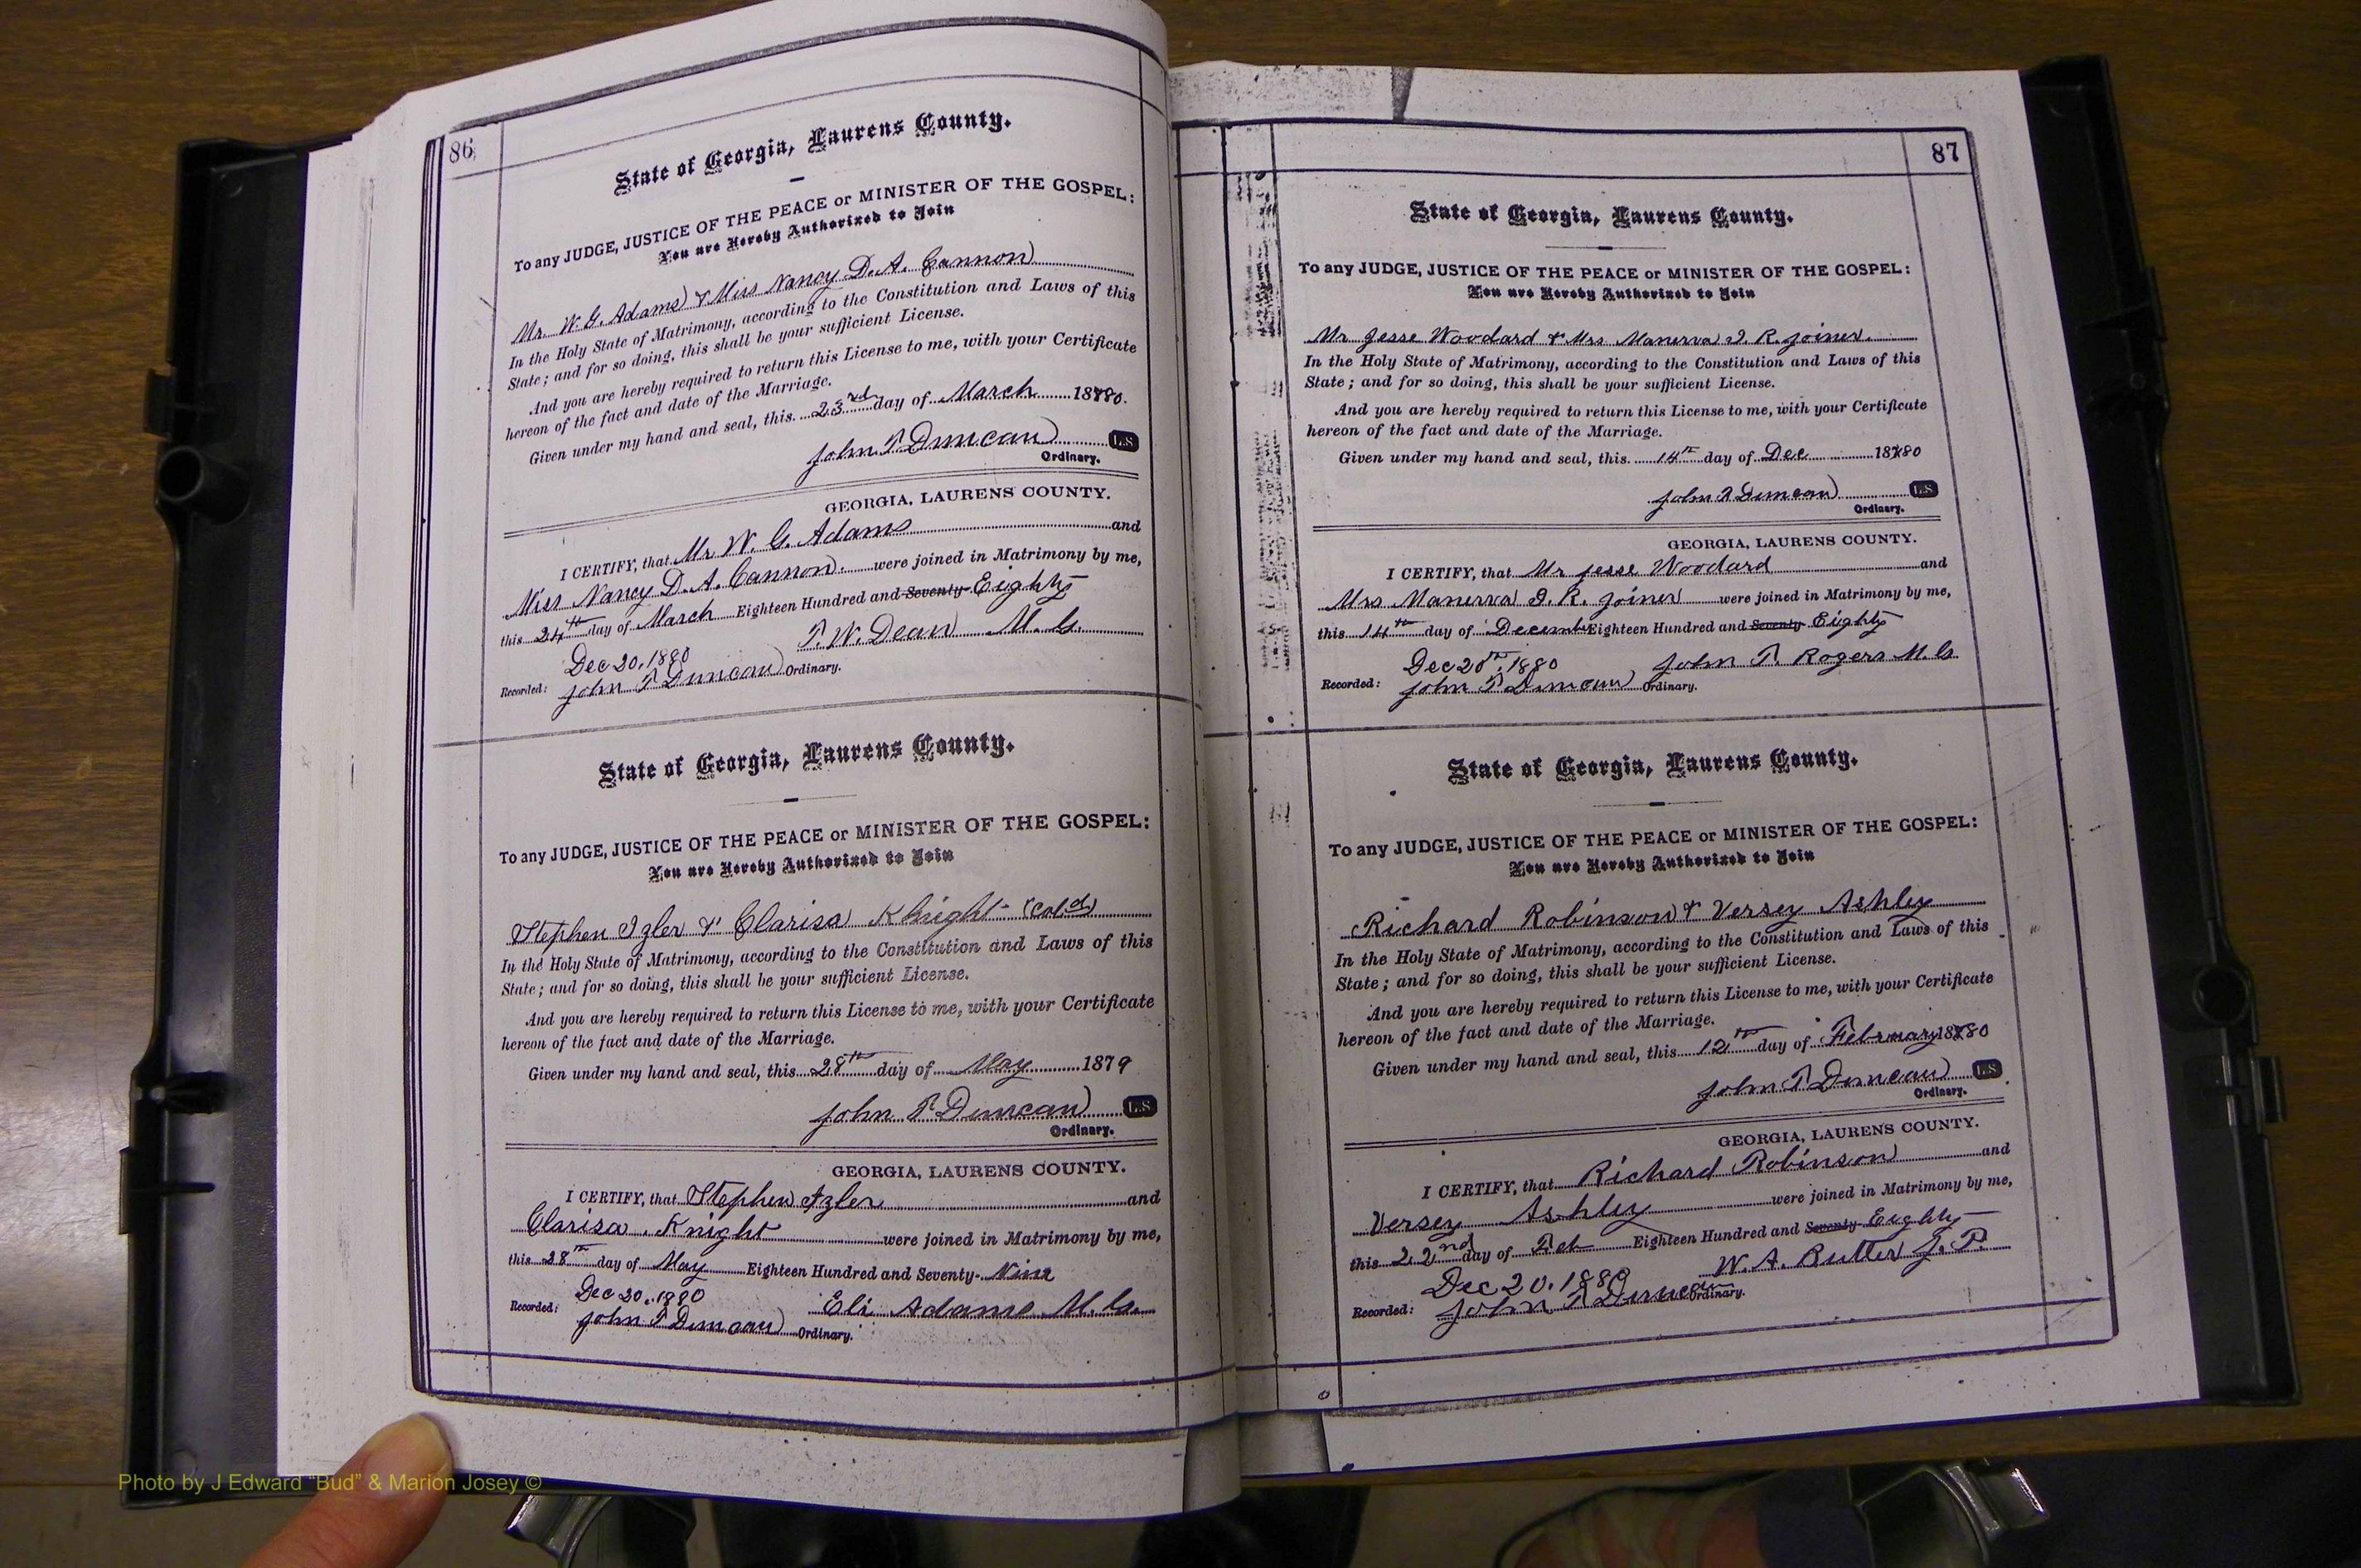 86
State of Georgia, Laurens County.
To any JUDGE, JUSTICE OF THE PEACE or MINISTER OF THE GOSPEL:
You are Hereby Authorized to Join
Mr. W. G. Adams & Miss Nancy D. A. Cannon
In the Holy State of Matrimony, according to the Constitution and Laws of this
State; and for so doing, this shall be your sufficient License.
And you are hereby required to return this License to me, with your Certificate
hereon of the fact and date of the Marriage.
Given under my hand and seal, this 23rd day of March 1880.
John T Duncan L.S
Ordinary.
GEORGIA, LAURENS COUNTY.
I CERTIFY, that Mr W. G. Adams and
Miss Nancy D. A. Cannon. were joined in Matrimony by me,
this 24th day of March Eighteen Hundred and Seventy Eighty
T. W. Dean M. G.
Dec 20, 1880
Recorded: John T Duncan Ordinary.
State of Georgia, Laurens County.
To any JUDGE, JUSTICE OF THE PEACE or MINISTER OF THE GOSPEL:
You are Hereby Authorized to Join
Stephen Izler & Clarisa Knight (Cold)
In the Holy State of Matrimony, according to the Constitution and Laws of this
State; and for so doing, this shall be your sufficient License.
And you are hereby required to return this License to me, with your Certificate
hereon of the fact and date of the Marriage.
Given under my hand and seal, this 28th day of May 1879
John T Duncan L.S
Ordinary.
GEORGIA, LAURENS COUNTY.
I CERTIFY, that Stephen Izler and
Clarisa Knight were joined in Matrimony by me,
this 28th day of May Eighteen Hundred and Seventy-Nine
Dec 20, 1880 Eli Adams M. G.
Recorded: John T Duncan Ordinary.
87
State of Georgia, Laurens County.
To any JUDGE, JUSTICE OF THE PEACE or MINISTER OF THE GOSPEL:
You are Hereby Authorized to Join
Mr Jesse Woodard & Mrs Manerva I. R. Joiner.
In the Holy State of Matrimony, according to the Constitution and Laws of this
State; and for so doing, this shall be your sufficient License.
And you are hereby required to return this License to me, with your Certificate
hereon of the fact and date of the Marriage.
Given under my hand and seal, this 14th day of Dec 1880
John T Duncan L.S
Ordinary.
GEORGIA, LAURENS COUNTY.
I CERTIFY, that Mr Jesse Woodard and
Mrs Manerva I. R. Joiner were joined in Matrimony by me,
this 14th day of December Eighteen Hundred and Seventy Eighty
Dec 20th, 1880 John T. Rogers M. G.
Recorded: John T Duncan Ordinary.
State of Georgia, Laurens County.
To any JUDGE, JUSTICE OF THE PEACE or MINISTER OF THE GOSPEL:
You are Hereby Authorized to Join
Richard Robinson & Versey Ashley
In the Holy State of Matrimony, according to the Constitution and Laws of this
State; and for so doing, this shall be your sufficient License.
And you are hereby required to return this License to me, with your Certificate
hereon of the fact and date of the Marriage.
Given under my hand and seal, this 12th day of February 1880
John T Duncan L.S
Ordinary.
GEORGIA, LAURENS COUNTY.
I CERTIFY, that Richard Robinson and
Versey Ashley were joined in Matrimony by me,
this 22nd day of Feb Eighteen Hundred and Seventy Eighty
Dec 20, 1880 W. A. Butler J. P.
Recorded: John T Duncan Ordinary.
Photo by J Edward "Bud" & Marion Josey ©